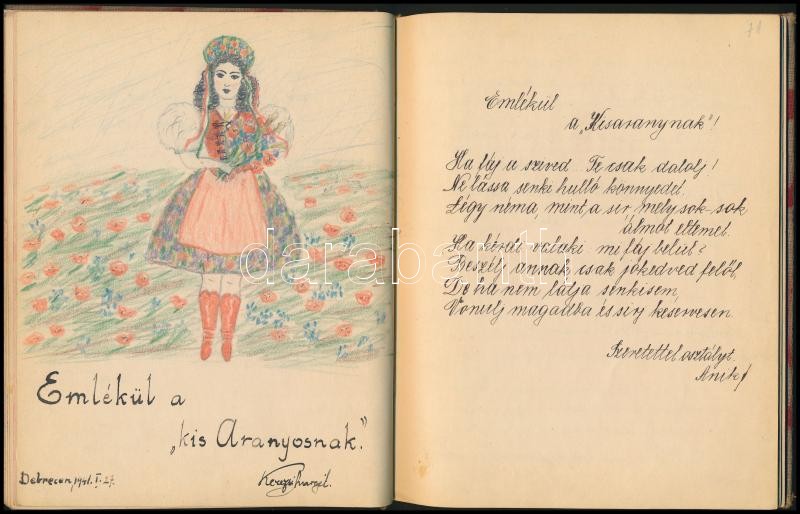 Emlékül a
„kis Aranyosnak."
Debrecen, 1941. I. 27.
71
Emlékül
a „Kisaranynak"!
Ha fáj a szived Te csak dalolj!
Ne lássa senki hulló könnyedet.
Légy néma, mint a sir, mely sok-sok
álmot eltemet.
Ha kérdi valaki mi fáj belül?
Beszélj annak csak jókedved felől,
De ha nem látja senkisem,
Vonulj magadba és sirj keservesen.
Szeretettel osztályt.
Anikó
darabanth